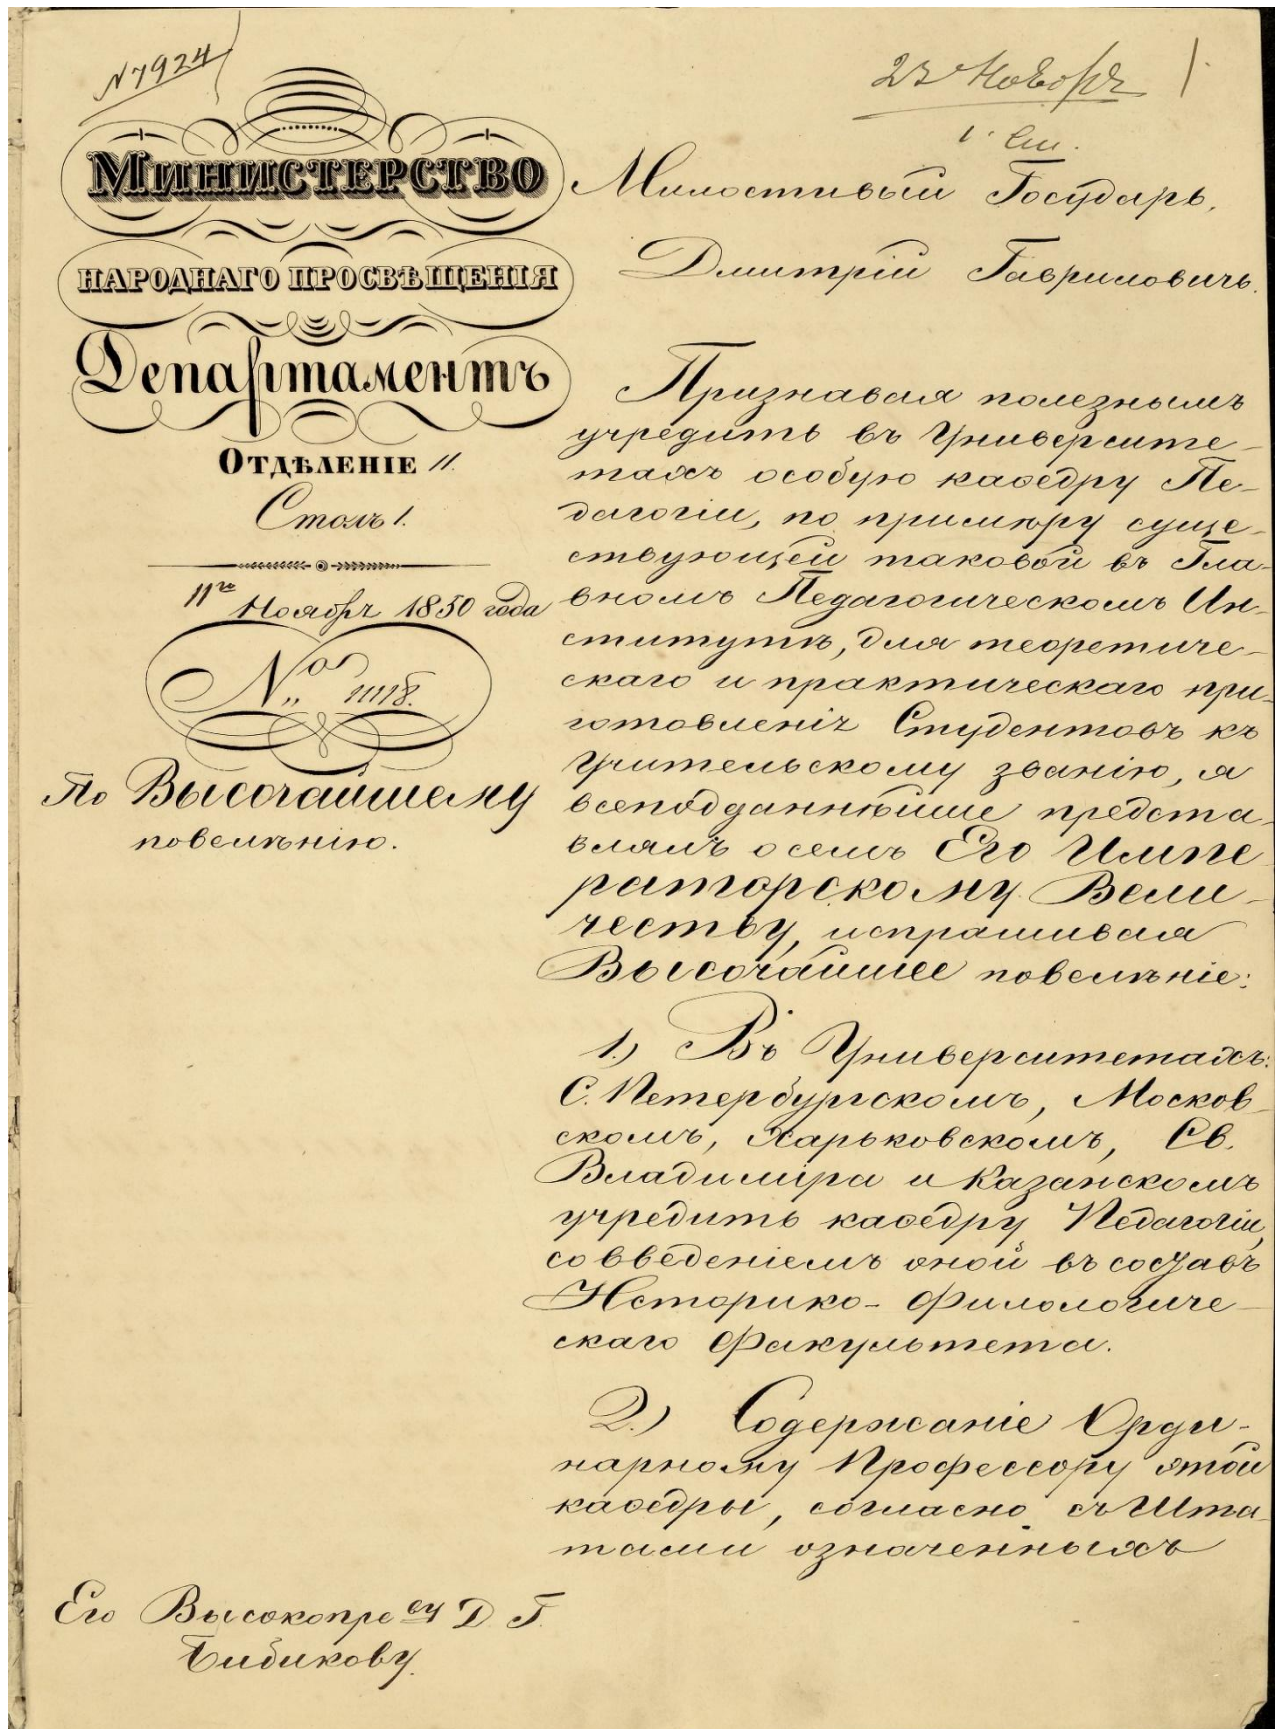 № 7924
23 Ноября
1.
1. Ст.
МИНИСТЕРСТВО
НАРОДНАГО ПРОСВѢЩЕНІЯ
Департаментъ
ОТДѢЛЕНІЕ II.
Столъ 1.
11го Ноября 1850 года
№ 11118.
По Высочайшему
повелѣнію.
Милостивый Государь,
Дмитрій Гавриловичъ.
Признавая полезнымъ
учредить въ Университе-
тахъ особую каѳедру Пе-
дагогіи, по примѣру суще-
ствующей таковой въ Гла-
вномъ Педагогическомъ Ин-
ститутѣ, для теоретиче-
скаго и практическаго при-
готовленія Студентовъ къ
Учительскому званію, я
всеподданнѣйше предста-
влялъ о семъ Его Импе
раторскому Вели-
честву, испрашивая
Высочайшее повелѣніе:
1.) Въ Университетахъ:
С. Петербургскомъ, Москов-
скомъ, Харьковскомъ, Св.
Владиміра и Казанскомъ
учредить каѳедру Педагогіи,
со введеніемъ оной въ составъ
Историко-Филологиче-
скаго Факультета.
2.) Содержаніе Орди-
нарному Профессору этой
каѳедры, согласно съ Шта-
тами означенныхъ
Его Высокопре ву Д. Г.
Бибикову.